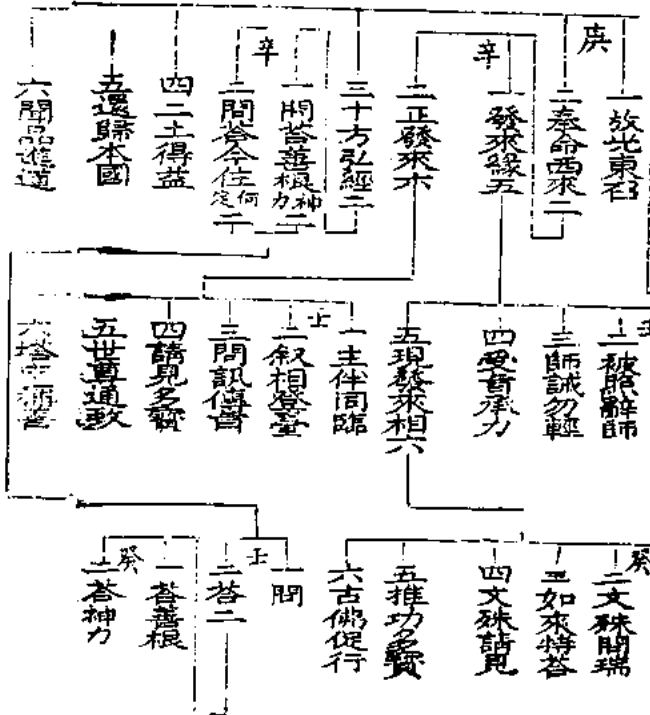 庚
一放光東召
二奉命西來二
辛
一發來緣五
二正發來六
三十方弘經二
辛
一問荅善根神力二
二問荅今住何定二
四二土得益
五還歸本國
六聞品進道
壬
二被照辭師
三師誡勿輕
四受旨承力
五現發來相六
壬
一主伴同臨
二叙相登臺
三問訊傳旨
四請見多寶
五世尊通致
六塔中稱善
癸
二文殊問瑞
三如來特荅
四文殊請見
五推功多寶
六古佛促行
壬
一問
二荅二
癸
一荅善根
二荅神力